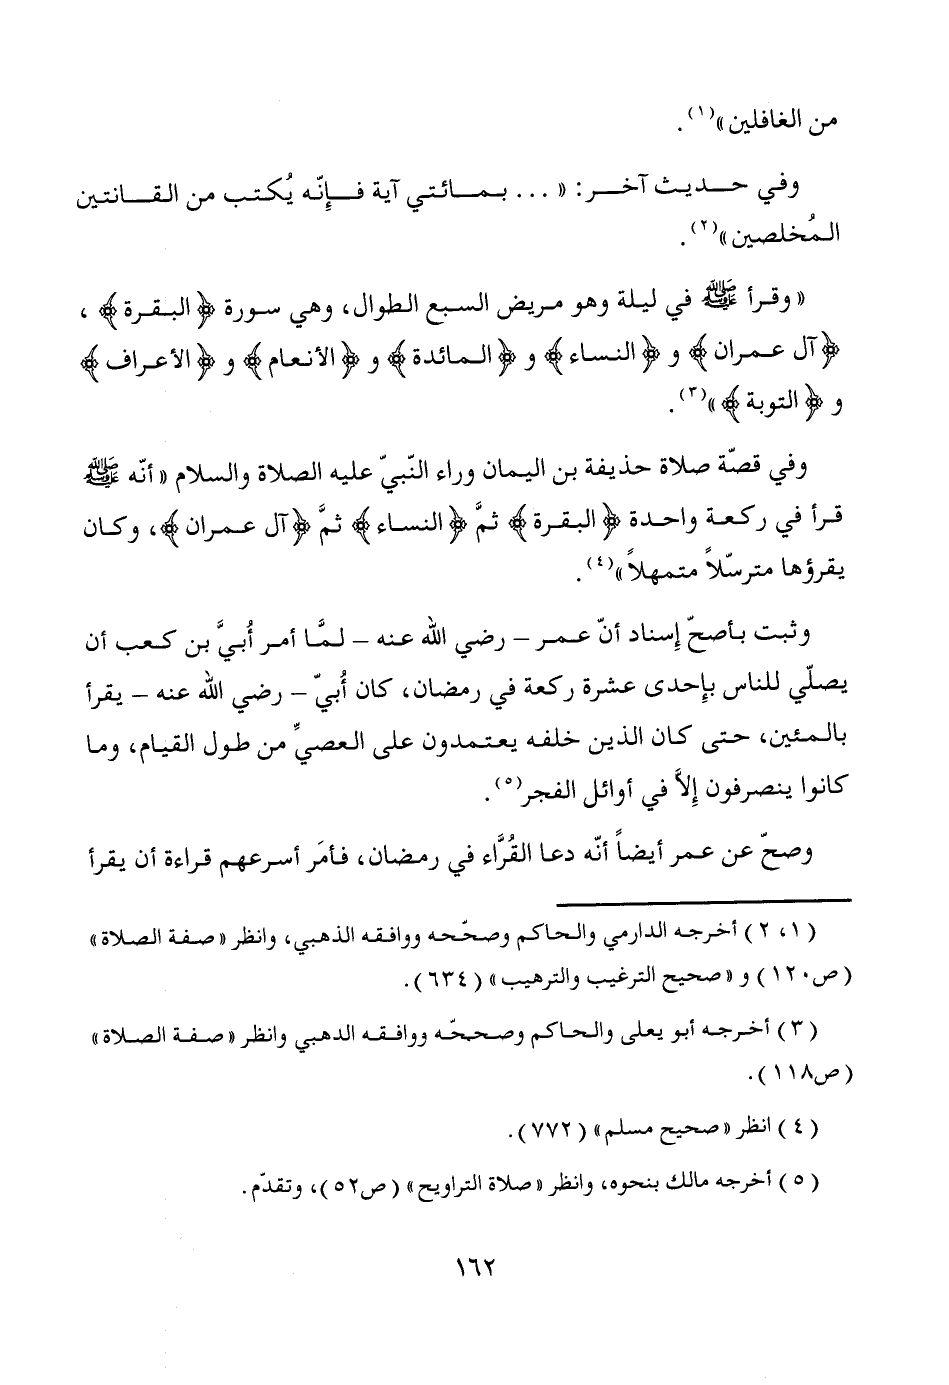 من الغافلين»(١).
وفي حديث آخر: «... بمائتي آية فإنّه يُكتب من القانتين
المُخلصين»(٢).
«وقرأ ﷺ في ليلة وهو مريض السبع الطوال، وهي سورة ﴿البقرة﴾،
﴿آل عمران﴾ و ﴿النساء﴾ و ﴿المائدة﴾ و ﴿الأنعام﴾ و ﴿الأعراف﴾
و ﴿التوبة﴾»(٣).
وفي قصّة صلاة حذيفة بن اليمان وراء النّبيّ عليه الصلاة والسلام «أنّه ﷺ
قرأ في ركعة واحدة ﴿البقرة﴾ ثمَّ ﴿النساء﴾ ثمَّ ﴿آل عمران﴾، وكان
يقرؤها مترسّلاً متمهلاً»(٤).
وثبت بأصحّ إسناد أنّ عمر – رضي الله عنه – لمَّا أمر أُبيَّ بن كعب أن
يصلّي للناس بإحدى عشرة ركعة في رمضان، كان أُبيّ – رضي الله عنه – يقرأ
بالمئين، حتى كان الذين خلفه يعتمدون على العصيِّ من طول القيام، وما
كانوا ينصرفون إلاَّ في أوائل الفجر(٥).
وصحّ عن عمر أيضاً أنّه دعا القُرَّاء في رمضان، فأمَر أسرعهم قراءة أن يقرأ
(١، ٢) أخرجه الدارمي والحاكم وصحّحه ووافقه الذهبي، وانظر «صفة الصلاة»
(ص١٢٠) و «صحيح الترغيب والترهيب» (٦٣٤).
(٣) أخرجه أبو يعلى والحاكم وصححّه ووافقه الذهبي وانظر «صفة الصلاة»
(ص١١٨).
(٤) انظر «صحيح مسلم» (٧٧٢).
(٥) أخرجه مالك بنحوه، وانظر «صلاة التراويح» (ص٥٢)، وتقدّم.
١٦٢